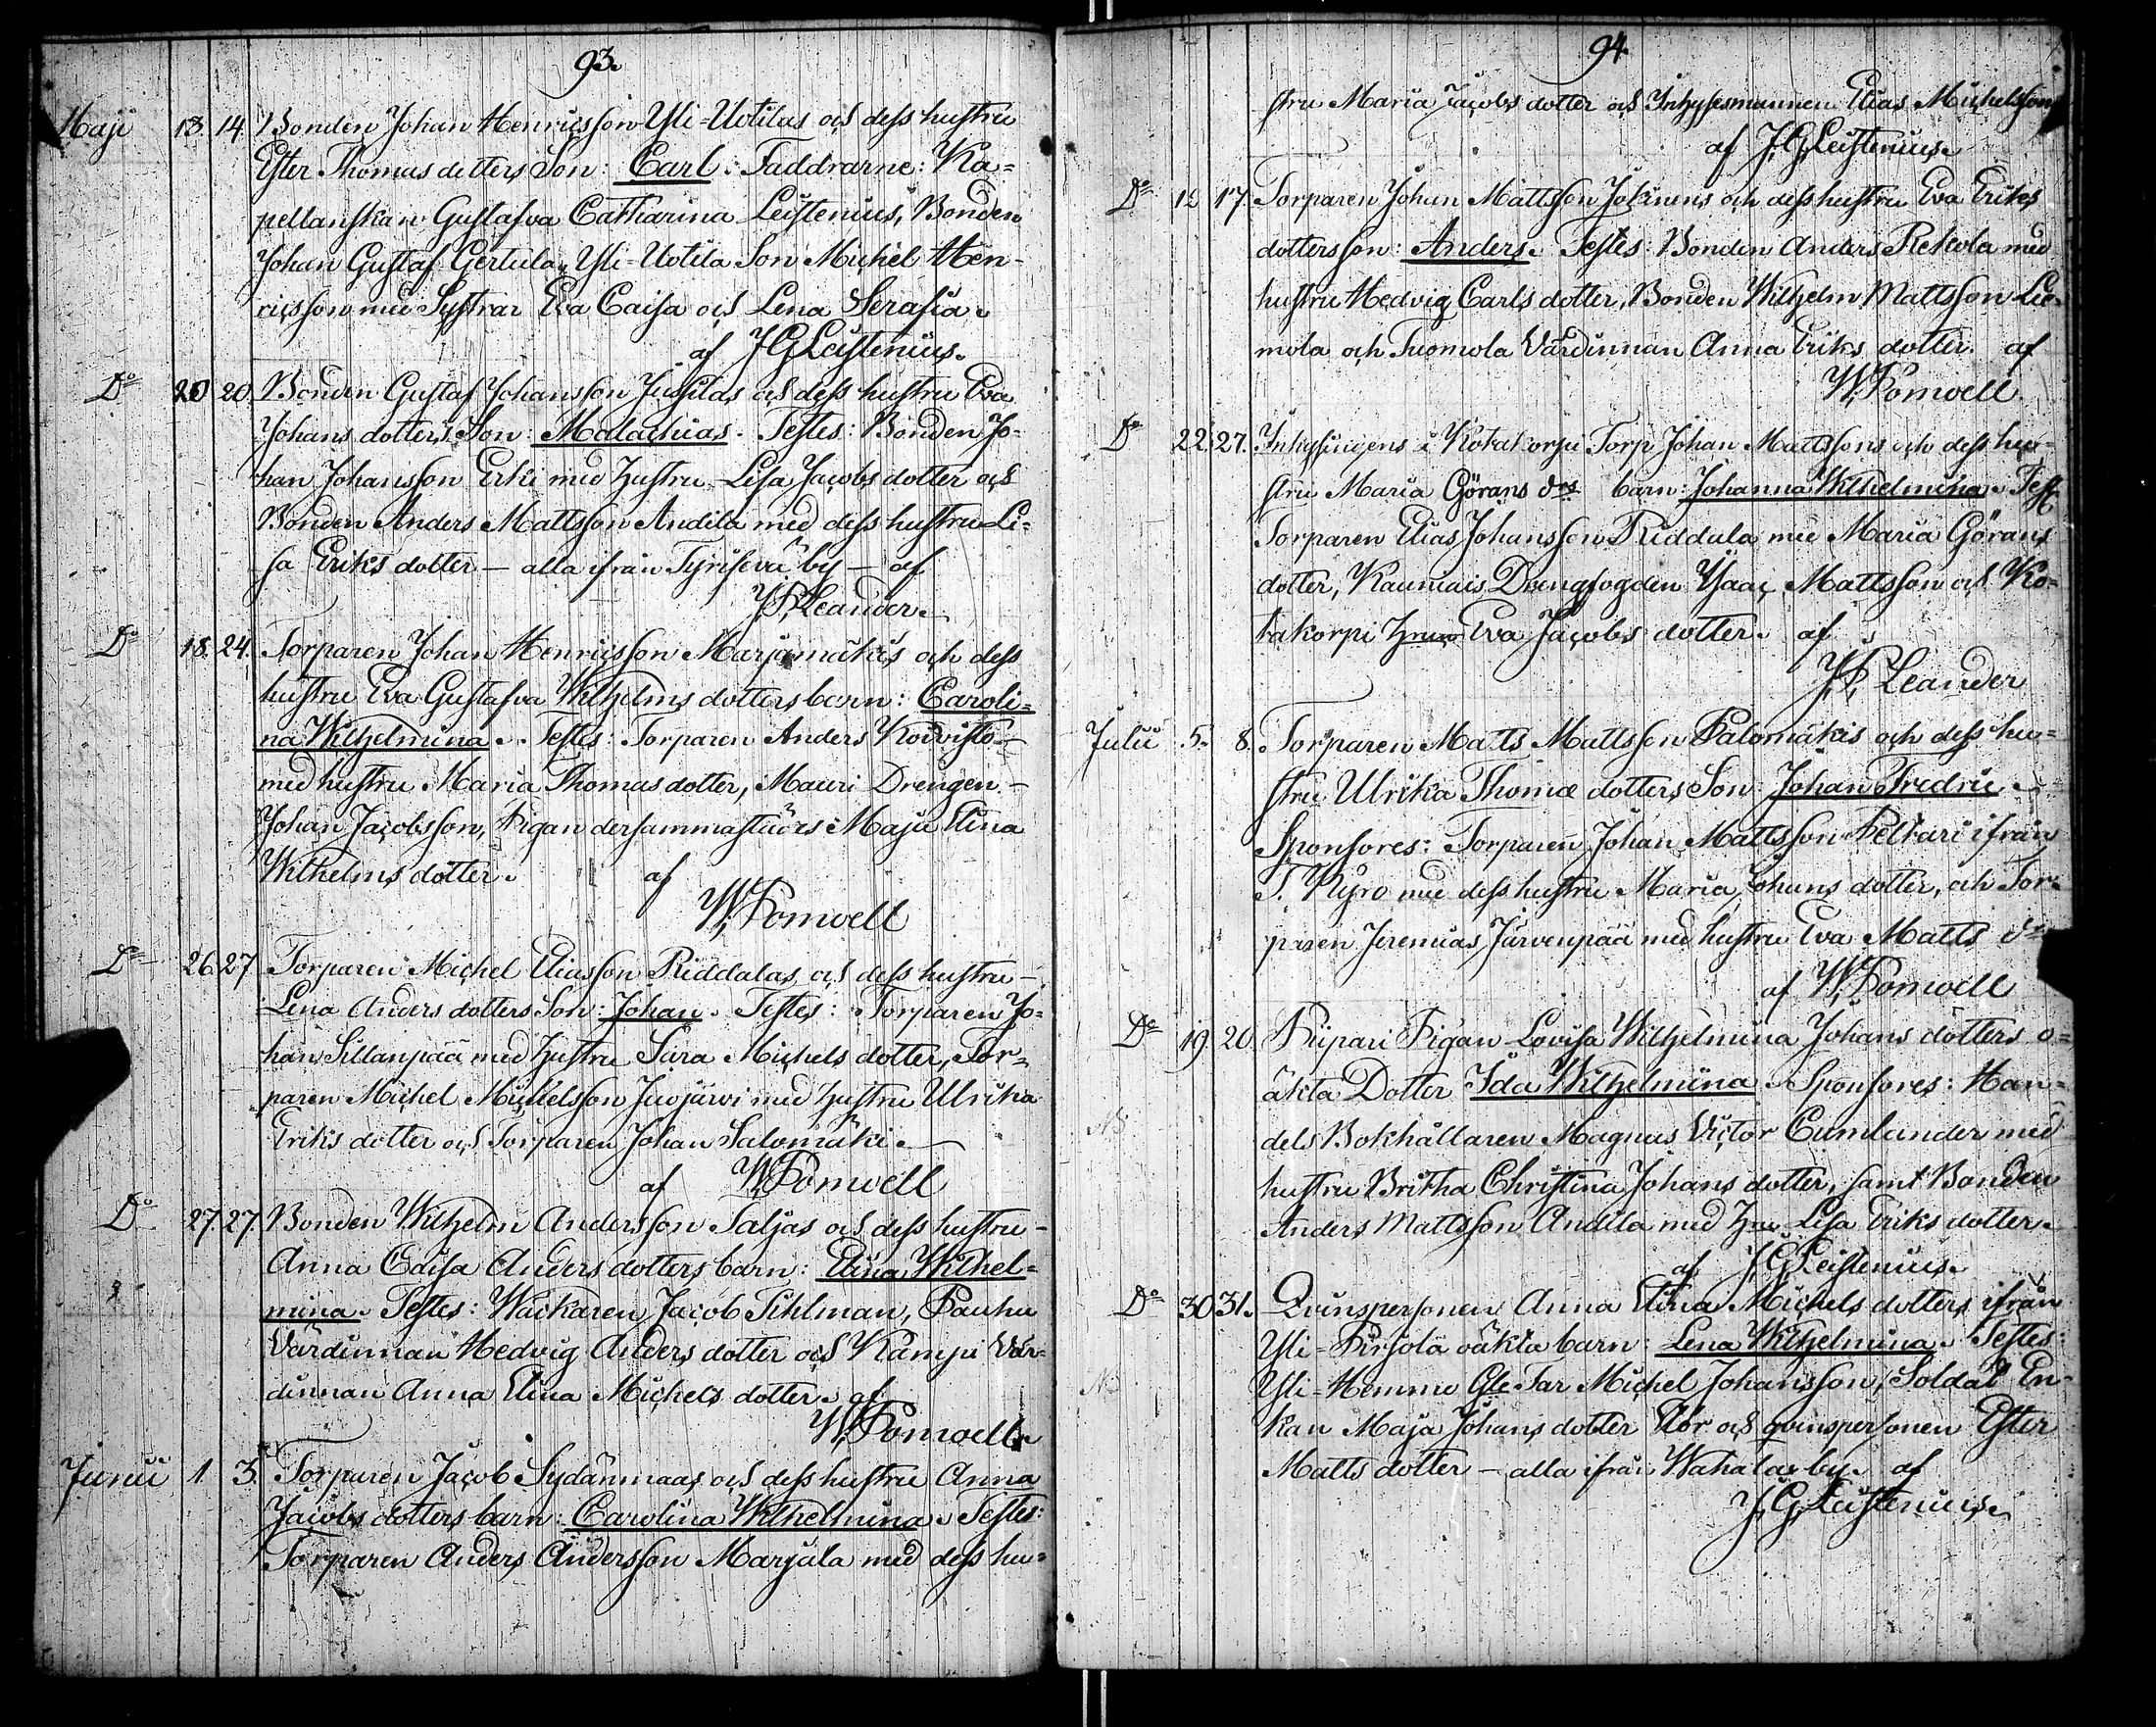 93.
Maji 13. 14. Bonden Johan Henricsson Yli-Uotilas och dess hustru
Ester Thomas dotters Son: Carl. Faddrarne: Ka-
pellanskan Gustafva Catharina Leistenius, Bonden
Johan Gustaf Gertula, Yli-Uotila Son Michel Hen-
ricsson med Systrar Eva Caisa och Lena Serafia.
af J G Leistenius.
Do 20 20. Bonden Gustaf Johansson Jussilas och dess hustru Eva
Johans dotters Son: Malachias. Testes: Bonden Jo-
han Johansson Erki med hustru Lisa Jacobs dotter och
Bonden Anders Mattsson Andila med dess hustru Li-
sa Eriks dotter — alla ifrån Tyrisevä by — af
J. Leander.
Do 18. 24. Torparen Johan Henricsson Marjamäkis och dess
hustru Eva Gustafva Wilhelms dotters barn: Caroli-
na Wilhelmina. Testes: Torparen Anders Koivisto
med hustru Maria Thomas dotter, Mauri Drengen
Johan Jacobsson, Pigan dersammastädes Maja Elina
Wilhelms dotter. af
W. Pomoell
Do 26. 27. Torparen Michel Eliasson Riddalas och dess hustru
Lena Anders dotters Son: Johan. Testes: Torparen Jo-
han Sillanpää med hustru Sara Michels dotter, Tor-
paren Michel Michelsson Juojärvi med hustru Ulrika
Eriks dotter och Torparen Johan Salomäki.
af W. Pomoell
Do 27. 27. Bonden Wilhelm Andersson Saljas och dess hustru
Anna Caisa Anders dotters barn: Elina Wilhel-
mina. Testes: Wäckaren Jacob Tihlman, Pauhu
Värdinnan Hedvig Anders dotter och Kämpi Vär-
dinnan Anna Elina Michels dotter. af
W. Pomoell
Junii 1. 3. Torparen Jacob Sydänmaas och dess hustru Anna
Jacobs dotters barn: Carolina Wilhelmina. Testes:
Torparen Anders Andersson Marjala med dess hu-
94.
stru Maria Jacobs dotter och Inhysesmannen Elias Michelsson
af J. G. Leistenius.
Do 12 17. Torparen Johan Mattsson Jokinens och dess hustru Eva Eriks
dotters son: Anders. Testes: Bonden Anders Rekola med
hustru Hedvig Carls dotter, Bonden Wilhelm Mattsson Luo-
mola och Tuomola Värdinnan Anna Eriks dotter. af
W. Pomoell.
Do 22. 27. Inhysingens i Kotakorpi Torp Johan Mattssons och dess hu-
stru Maria Görans drs barn: Johanna Wilhelmina. Test
Torparen Elias Johansson Riddala med Maria Görans
dotter, Kaumais Drengfogden Isaac Mattsson och Ko-
takorpi hrun Eva Jacobs dotter. af
J. Leander
Julii 5. 8. Torparen Matts Mattsson Palomäkis och dess hu-
stru Ulrika Thomæ dotters Son: Johan Fredric.
Sponsores: Torparen Johan Mattsson Peltari ifrån
T. Kyro med dess hustru Maria Johans dotter, och Tor-
paren Jeremias Järvenpää med hustru Eva Matts dr
af W. Pomoell
Do 19. 20. Piipari Pigan Lovisa Wilhelmina Johans dotters o-
äkta Dotter Ida Wilhelmina. Sponsores: Han-
dels Bokhållaren Magnus Victor Cumlander med
hustru Britha Christina Johans dotter, samt Bonden
Anders Mattsson Andila med hru Lisa Eriks dotter.
af J. G. Leistenius.
Do 30 31. Qvinspersonen Anna Elina Michels dotters ifrån
Yli-Pirjola oäkta barn: Lena Wilhelmina. Testes:
Yli-Hemmu Gle Far Michel Johansson, Soldat En-
kan Maja Johans dotter Klor och qvinspersonen Ester
Matts dotter — alla ifrån Wahala by. af
J. G. Leistenius.